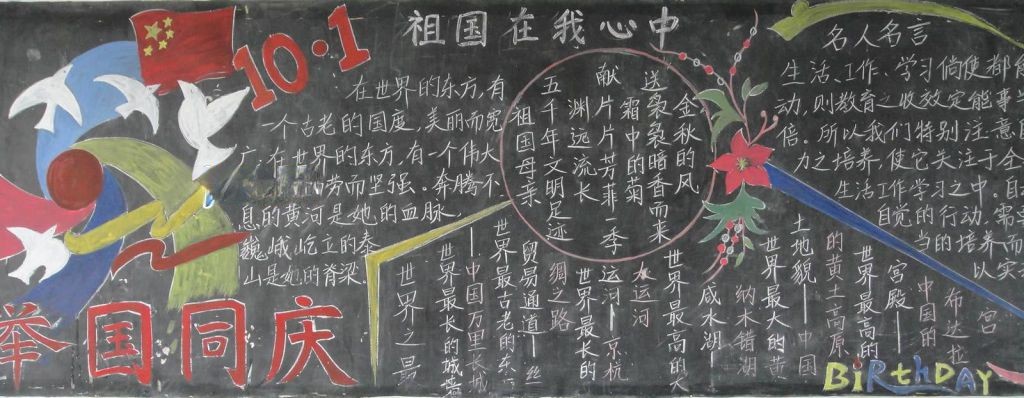 10·1
祖国在我心中
在世界的东方,有
一个古老的国度,美丽而宽
广,在世界的东方,有一个伟大
劳而坚强。奔腾不
息的黄河是她的血脉,
巍峨屹立的泰
山是她的脊梁。
举国同庆
金秋的风
送袅袅暗香而来
霜中的菊
献片片芳菲一季
渊远流长
五千年文明足迹
祖国母亲
世界之最
世界最长的城墙
—中国万里长城
世界最古老的东
贸易通道—丝
绸之路
世界最长的
运河—京杭
大运河
世界最高的大
咸水湖—
纳木错湖
世界最大的黄
土地貌—中国
的黄土高原
世界最高的
宫殿—
中国的
布达拉
宫
名人名言
生活、工作、学习倘使都能
动,则教育之收效定能事半
倍。所以我们特别注意自
力之培养,使它关注于全
生活工作学习之中。自
自觉的行动,需
当的培养而
以实
BiRthDAy